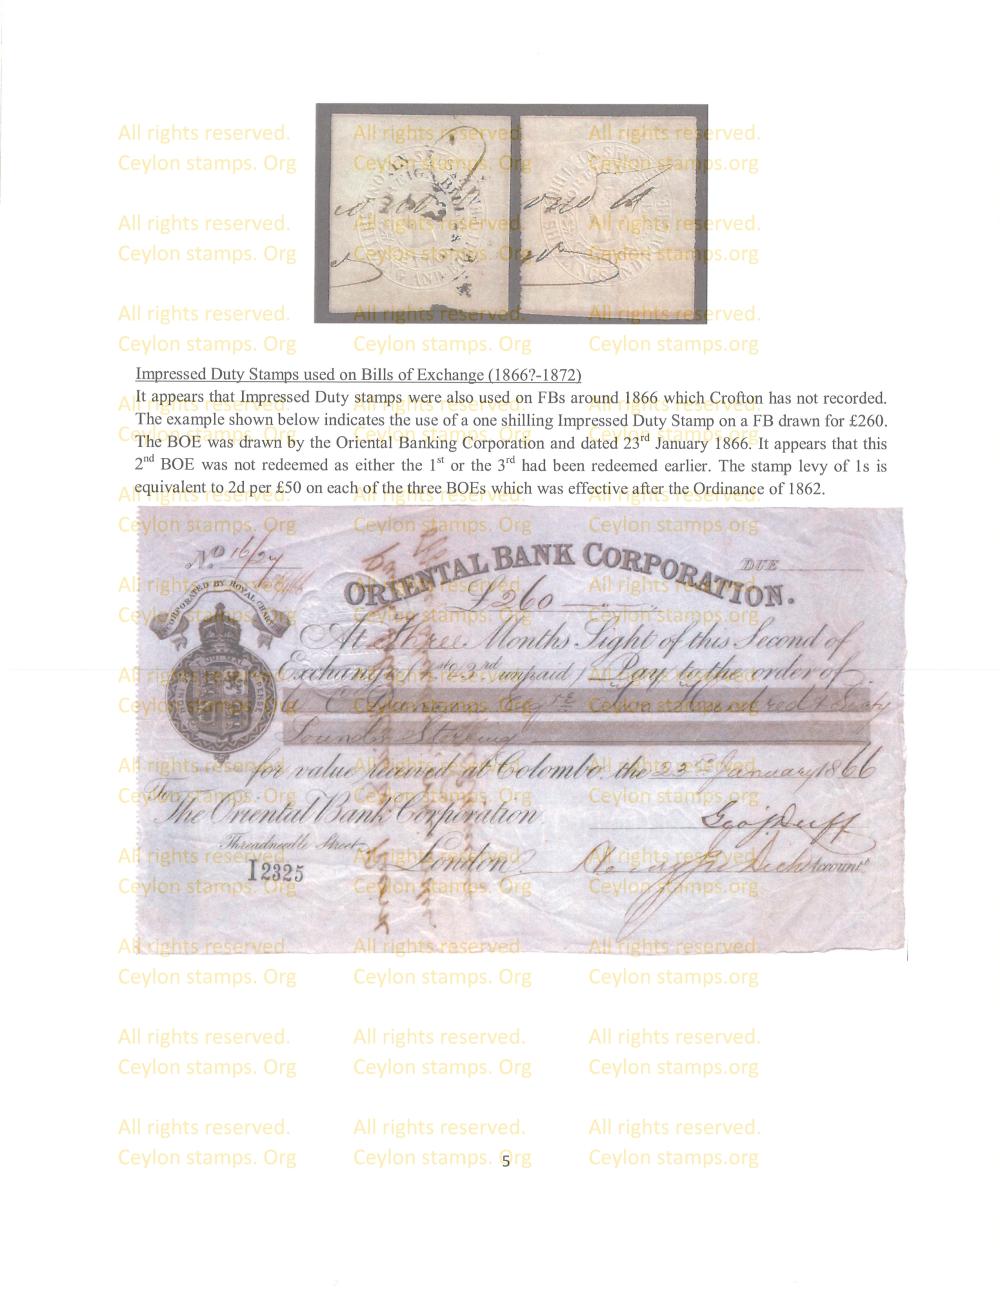 Impressed Duty Stamps used on Bills of Exchange (1866?-1872)
It appears that Impressed Duty stamps were also used on FBs around 1866 which Crofton has not recorded.
The example shown below indicates the use of a one shilling Impressed Duty Stamp on a FB drawn for £260.
The BOE was drawn by the Oriental Banking Corporation and dated 23rd January 1866. It appears that this
2nd BOE was not redeemed as either the 1st or the 3rd had been redeemed earlier. The stamp levy of 1s is
equivalent to 2d per £50 on each of the three BOEs which was effective after the Ordinance of 1862.
No 16/27
DUE
ORIENTAL BANK CORPORATION.
£260
INCORPORATED BY ROYAL CHARTER
At Three Months Sight of this Second of
Exchange (1st & 3rd unpaid) Pay to the order of
Hundred & Sixty
Pounds Sterling
for value received at Colombo the 23rd January 1866
To
The Oriental Bank Corporation
Geo J. Duff
Threadneedle Street
London
Accountt
I2325
All rights reserved.
Ceylon stamps. Org
All rights reserved.
Ceylon stamps. Org
All rights reserved.
Ceylon stamps.org
5